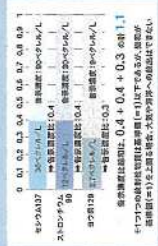 0 0.1 0.2 0.3 0.4 0.5 0.6 0.7 0.8 0.9 1
セシウム137
36ベクレル/L
告示濃度:90ベクレル/L
告示濃度比:0.4
ストロンチウム
90
12ベクレル/L
告示濃度:30ベクレル/L
告示濃度比:0.4
ヨウ素129
2.7ベクレル/L
告示濃度:9ベクレル/L
告示濃度比:0.3
告示濃度比総和は、0.4 + 0.4 + 0.3 の計 1.1
※1つ1つの放射性物質は基準値(=1)以下であるが、総和が
基準値(=1)を上回る場合、大気や海洋への放出はできない